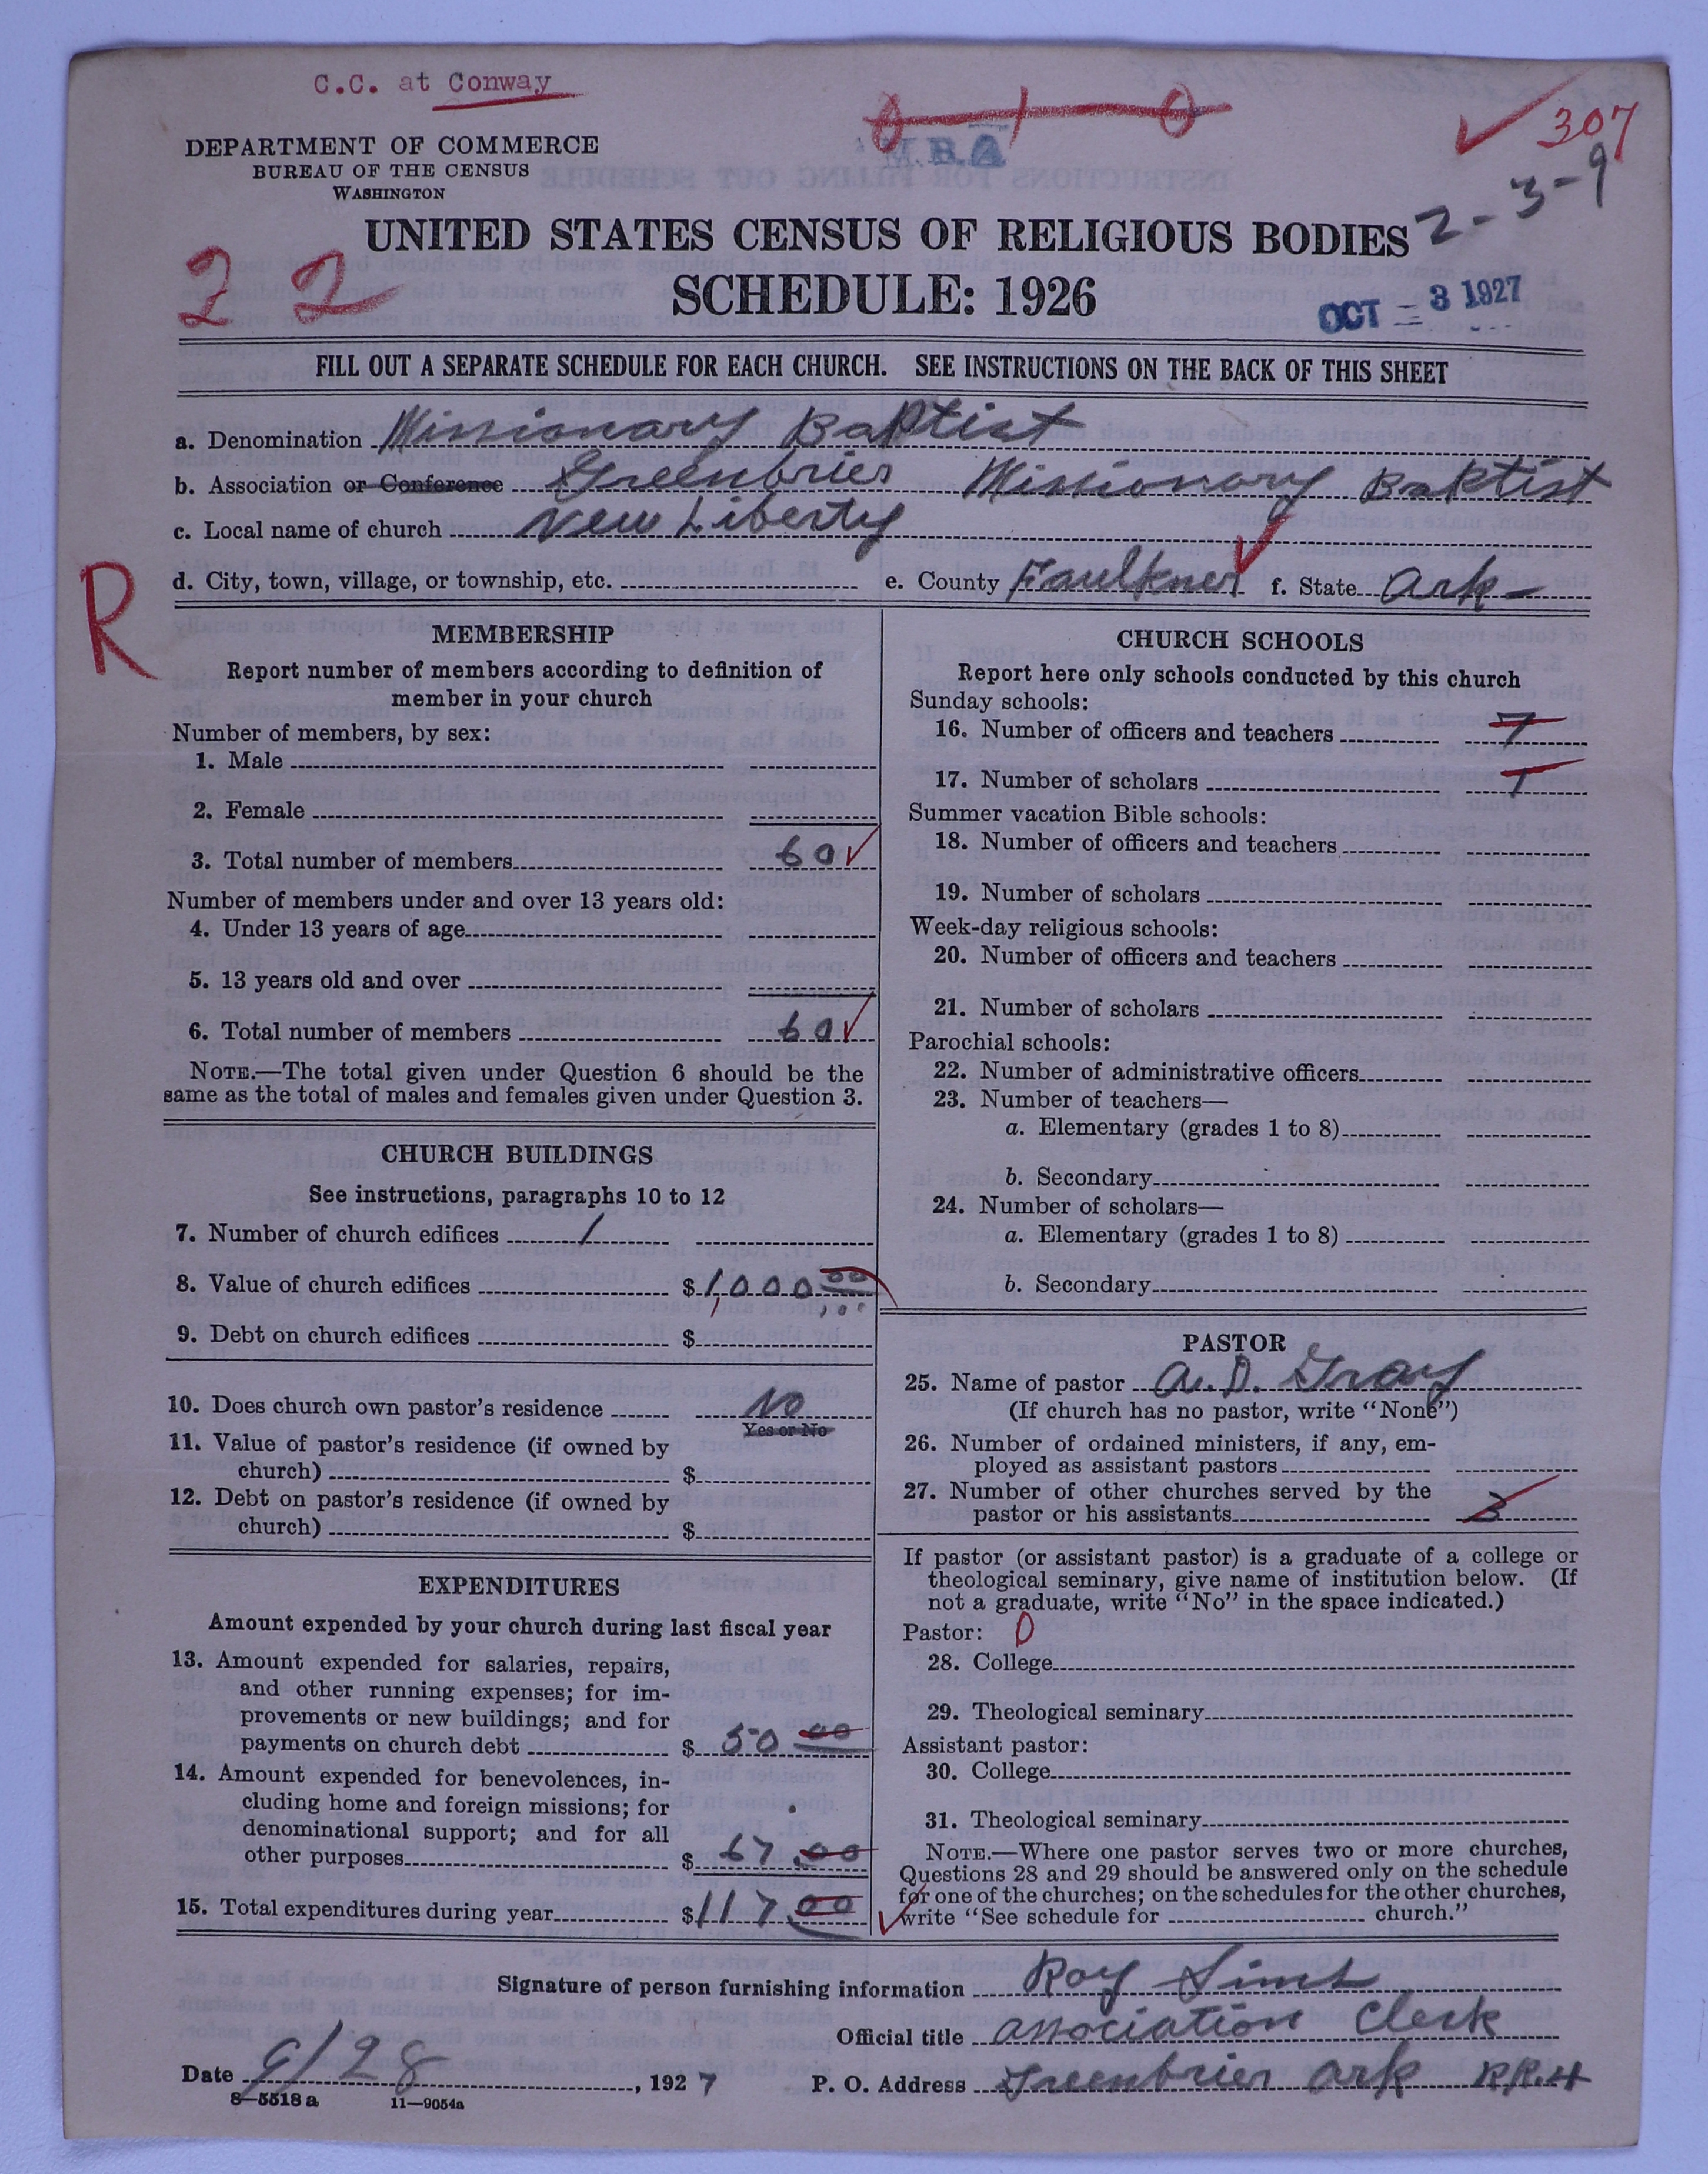 C.C. at Conway
307
M.B.A
2-3-9
DEPARTMENT OF COMMERCE
BUREAU OF THE CENSUS
WASHINGTON
UNITED STATES CENSUS OF RELIGIOUS BODIES
SCHEDULE: 1926
22
OCT - 3 1927
FILL OUT A SEPARATE SCHEDULE FOR EACH CHURCH. SEE INSTRUCTIONS ON THE BACK OF THIS SHEET
a. Denomination Missionary Baptist
b. Association or Conference Greenbrier Missionary Baptist
c. Local name of church New Liberty
d. City, town, village, or township, etc. e. County Faulkner f. State Ark
R
MEMBERSHIP
Report number of members according to definition of
member in your church
Number of members, by sex:
1. Male
2. Female
3. Total number of members 60
Number of members under and over 13 years old:
4. Under 13 years of age
5. 13 years old and over
6. Total number of members 60
NOTE.—The total given under Question 6 should be the
same as the total of males and females given under Question 3.
CHURCH BUILDINGS
See instructions, paragraphs 10 to 12
7. Number of church edifices 1
8. Value of church edifices $1000 00
9. Debt on church edifices $
10. Does church own pastor's residence No
Yes or No
11. Value of pastor's residence (if owned by
church) $
12. Debt on pastor's residence (if owned by
church) $
EXPENDITURES
Amount expended by your church during last fiscal year
13. Amount expended for salaries, repairs,
and other running expenses; for im-
provements or new buildings; and for
payments on church debt $ 50 00
14. Amount expended for benevolences, in-
cluding home and foreign missions; for
denominational support; and for all
other purposes $ 67.00
15. Total expenditures during year $117.00
CHURCH SCHOOLS
Report here only schools conducted by this church
Sunday schools:
16. Number of officers and teachers
17. Number of scholars
Summer vacation Bible schools:
18. Number of officers and teachers
19. Number of scholars
Week-day religious schools:
20. Number of officers and teachers
21. Number of scholars
Parochial schools:
22. Number of administrative officers
23. Number of teachers—
a. Elementary (grades 1 to 8)
b. Secondary
24. Number of scholars—
a. Elementary (grades 1 to 8)
b. Secondary
PASTOR
25. Name of pastor A. D. Gray
(If church has no pastor, write "None")
26. Number of ordained ministers, if any, em-
ployed as assistant pastors
27. Number of other churches served by the
pastor or his assistants 3
If pastor (or assistant pastor) is a graduate of a college or
theological seminary, give name of institution below. (If
not a graduate, write "No" in the space indicated.)
Pastor: 0
28. College
29. Theological seminary
Assistant pastor:
30. College
31. Theological seminary
NOTE.—Where one pastor serves two or more churches,
Questions 28 and 29 should be answered only on the schedule
for one of the churches; on the schedules for the other churches,
write "See schedule for church."
Signature of person furnishing information Roy Sims
Official title Association Clerk
Date 9/28, 1927 P. O. Address Greenbrier Ark RR.4
8—5518 a 11—9054a